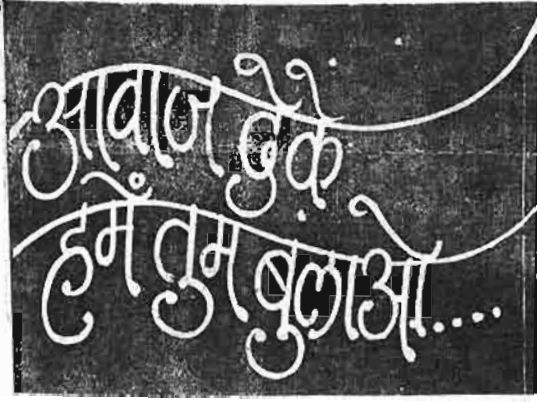 आवाज देके
हमें तुम बुलाओ....